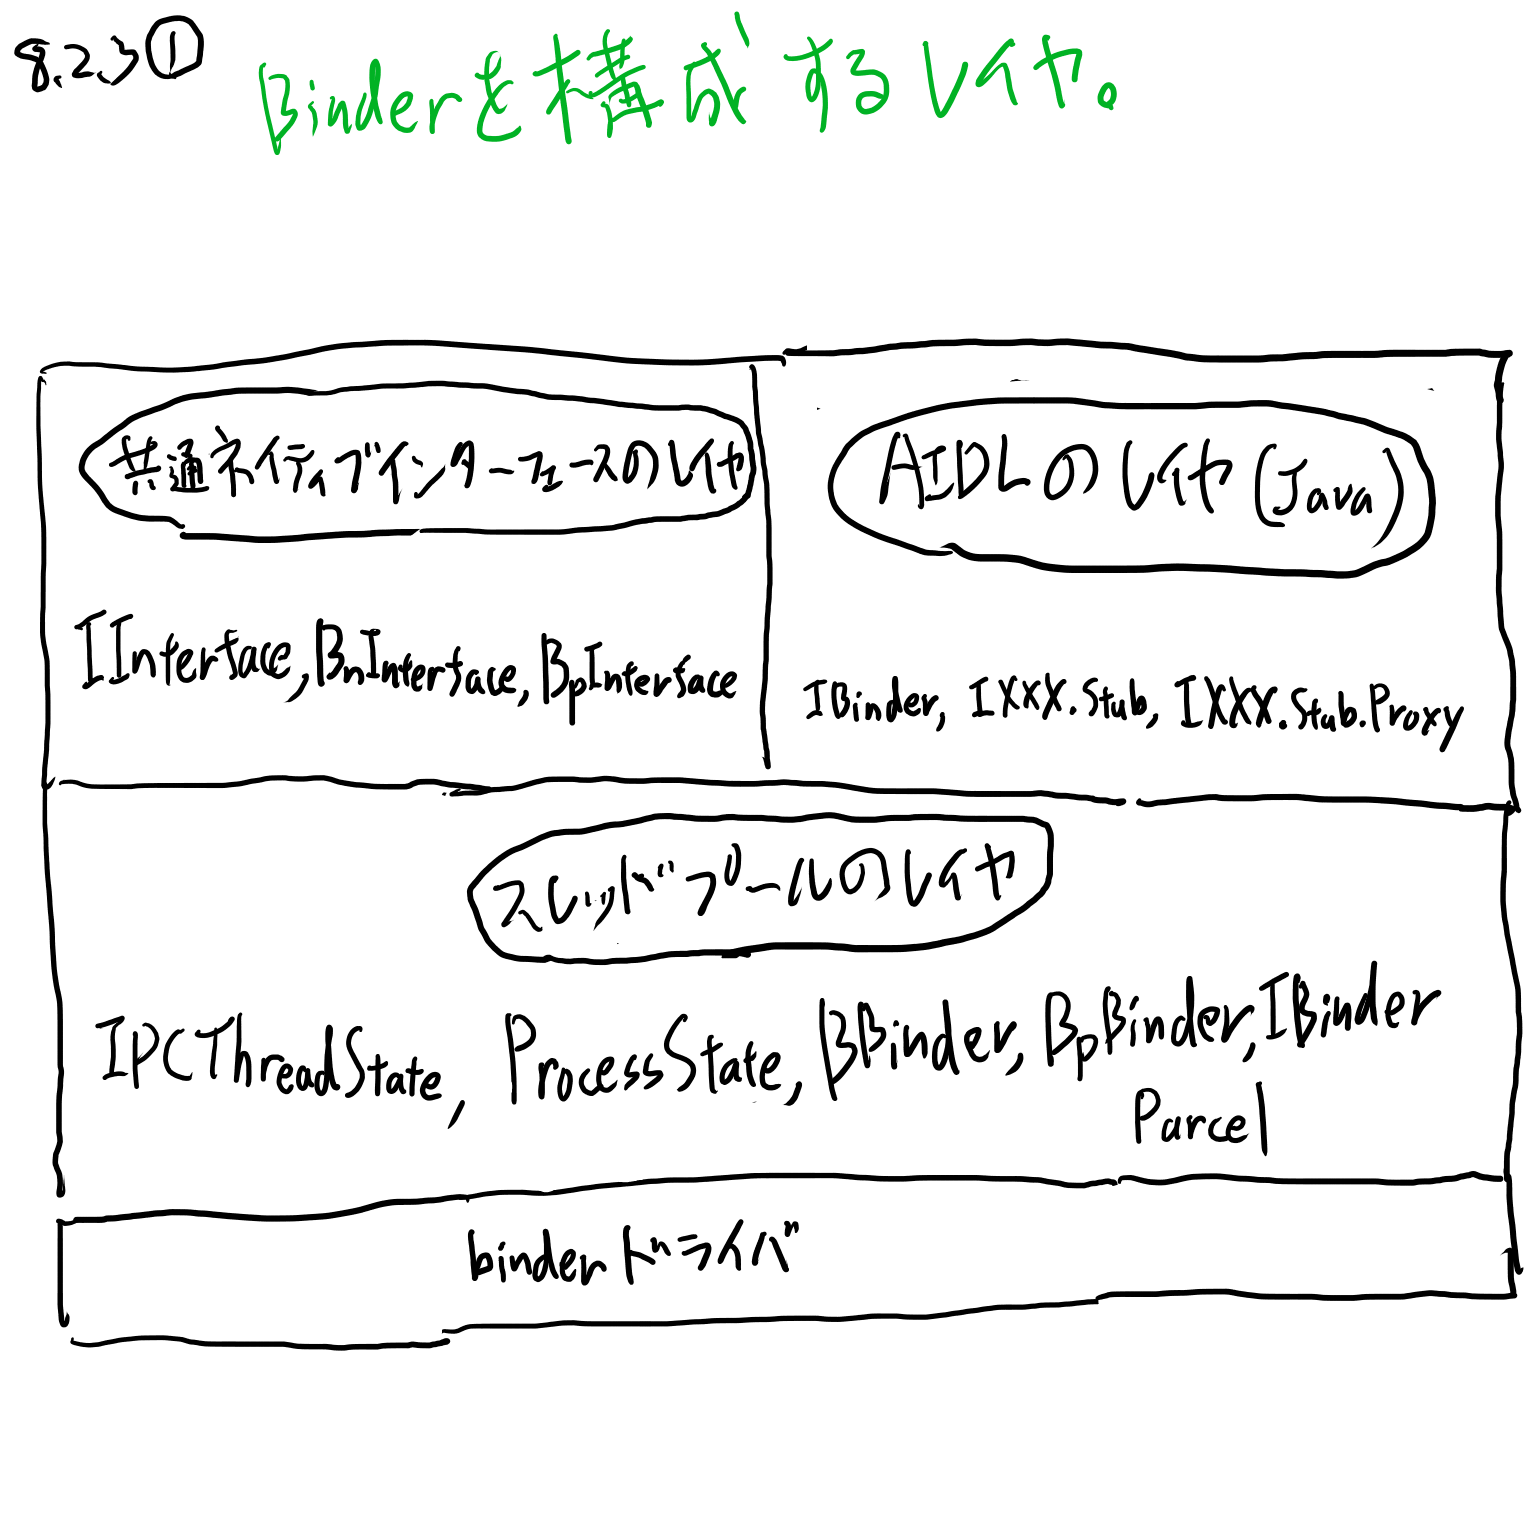 8.2.3①
Binderを構成するレイヤ。
共通ネイティブインターフェースのレイヤ
IInterface, BnInterface, BpInterface
AIDLのレイヤ(Java)
IBinder, IXXX.Stub, IXXX.Stub.Proxy
スレッドプールのレイヤ
IPCThreadState, ProcessState, BBinder, BpBinder, IBinder
Parcel
binderドライバ